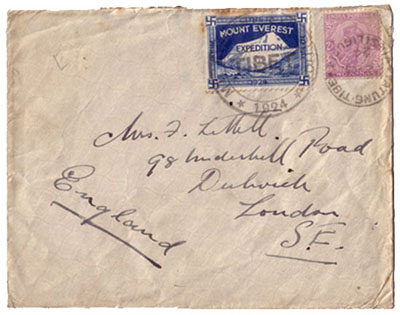 MOUNT EVEREST
EXPEDITION
TIBET
1924
Mrs. F. Littell
98 Underhill Road
Dulwich
London
S.E.
England